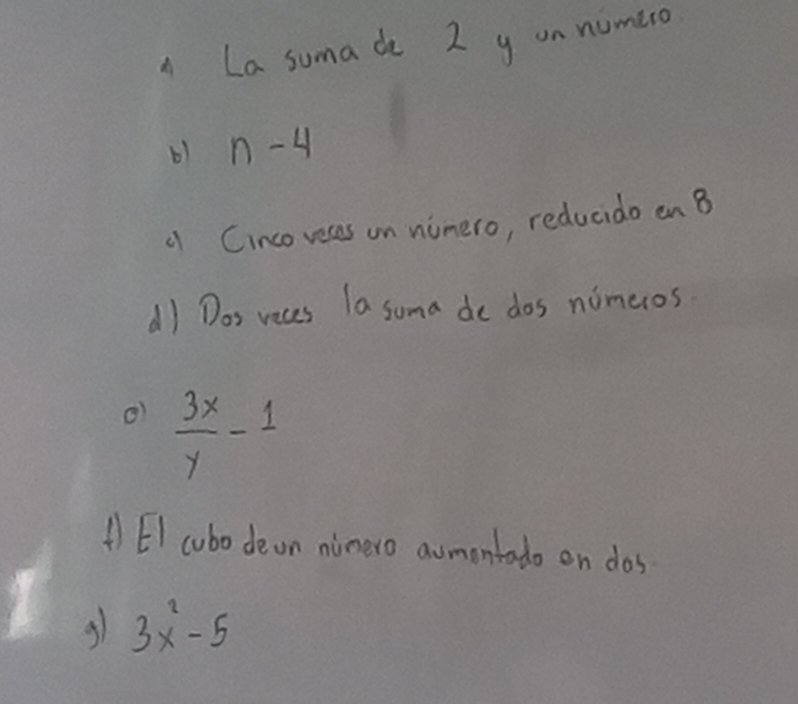 a) La suma de 2 y un número.
b) n - 4
c) Cinco veces un número, reducido en 8
d) Dos veces la suma de dos números.
e) 3x/y - 1
f) El cubo de un número aumentado en dos.
g) 3x² - 5